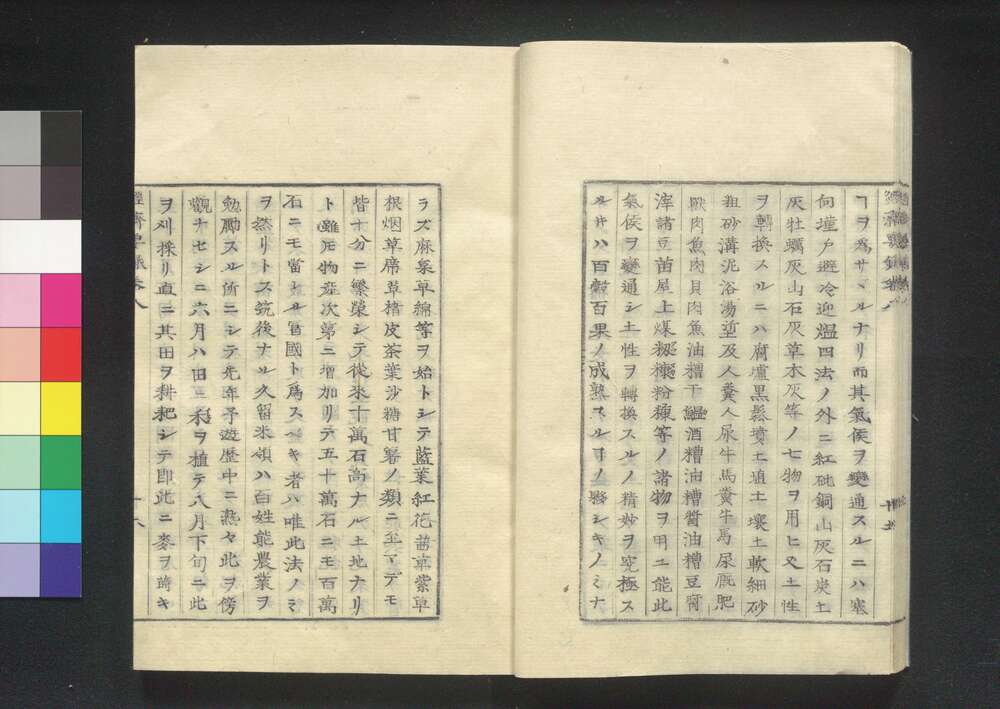 ヿヲ為サヽルナリ而其氣侯ヲ變通スルニハ塞
向墐戸避冷迎煴四法ノ外ニ紅砒銅山灰石炭土
灰牡蠣灰山石灰草木灰等ノ七物ヲ用ヒ又土性
ヲ轉換スルニハ腐壚黒鬆墳土埴土壤土軟細砂
粗砂溝泥浴湯埿及人糞人尿牛馬糞牛馬尿厩肥
獸肉魚肉貝肉魚油糟干鰮酒糟油糟醤油糟豆腐
滓諸豆苗屋上煤粉糠等ノ諸物ヲ用ユ能此
氣侯ヲ變通シ土性ヲ轉換スルノ精妙ヲ究極ス
ルキハ百穀百果ノ成熟スルヿノ夥シキノミナ
十五
ラズ麻枲草綿等ヲ始トシテ藍葉紅花茜草紫草
根烟草席草楮皮茶葉沙糖甘薯ノ類ニ至マデモ
皆十分ニ繁榮シテ從来十萬石高ナル土地ナリ
ト雖𪜈物産次第ニ増加リテ五十萬石ニモ百萬
石ニモ當ナル冨國ト為スベキ者ハ唯此法ノミ
ヲ然リトス筑後ナル久留米領ハ白姓能農業ヲ
勉勵スル所ニシテ先年予遊歴中ニ熟々此ヲ傍
觀ナセシニ六月ハ田ニ禾ヲ植テ八月下旬ニ此
ヲ刈採リ直ニ其田ヲ耕耙シテ即此ニ麥ヲ蒔キ
十六